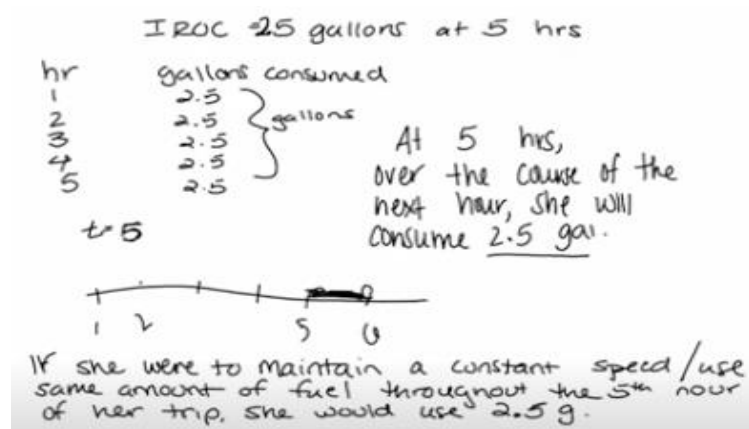 IROC 25 gallons at 5 hrs
hr gallons consumed
1 2.5
2 2.5
3 2.5 gallons
4 2.5
5 2.5
At 5 hrs,
over the cause of the
next hour, she will
consume 2.5 gal.
t=5
1 2 5 6
If she were to maintain a constant speed/use
same amount of fuel throughout the 5th hour
of her trip, she would use 2.5 g.